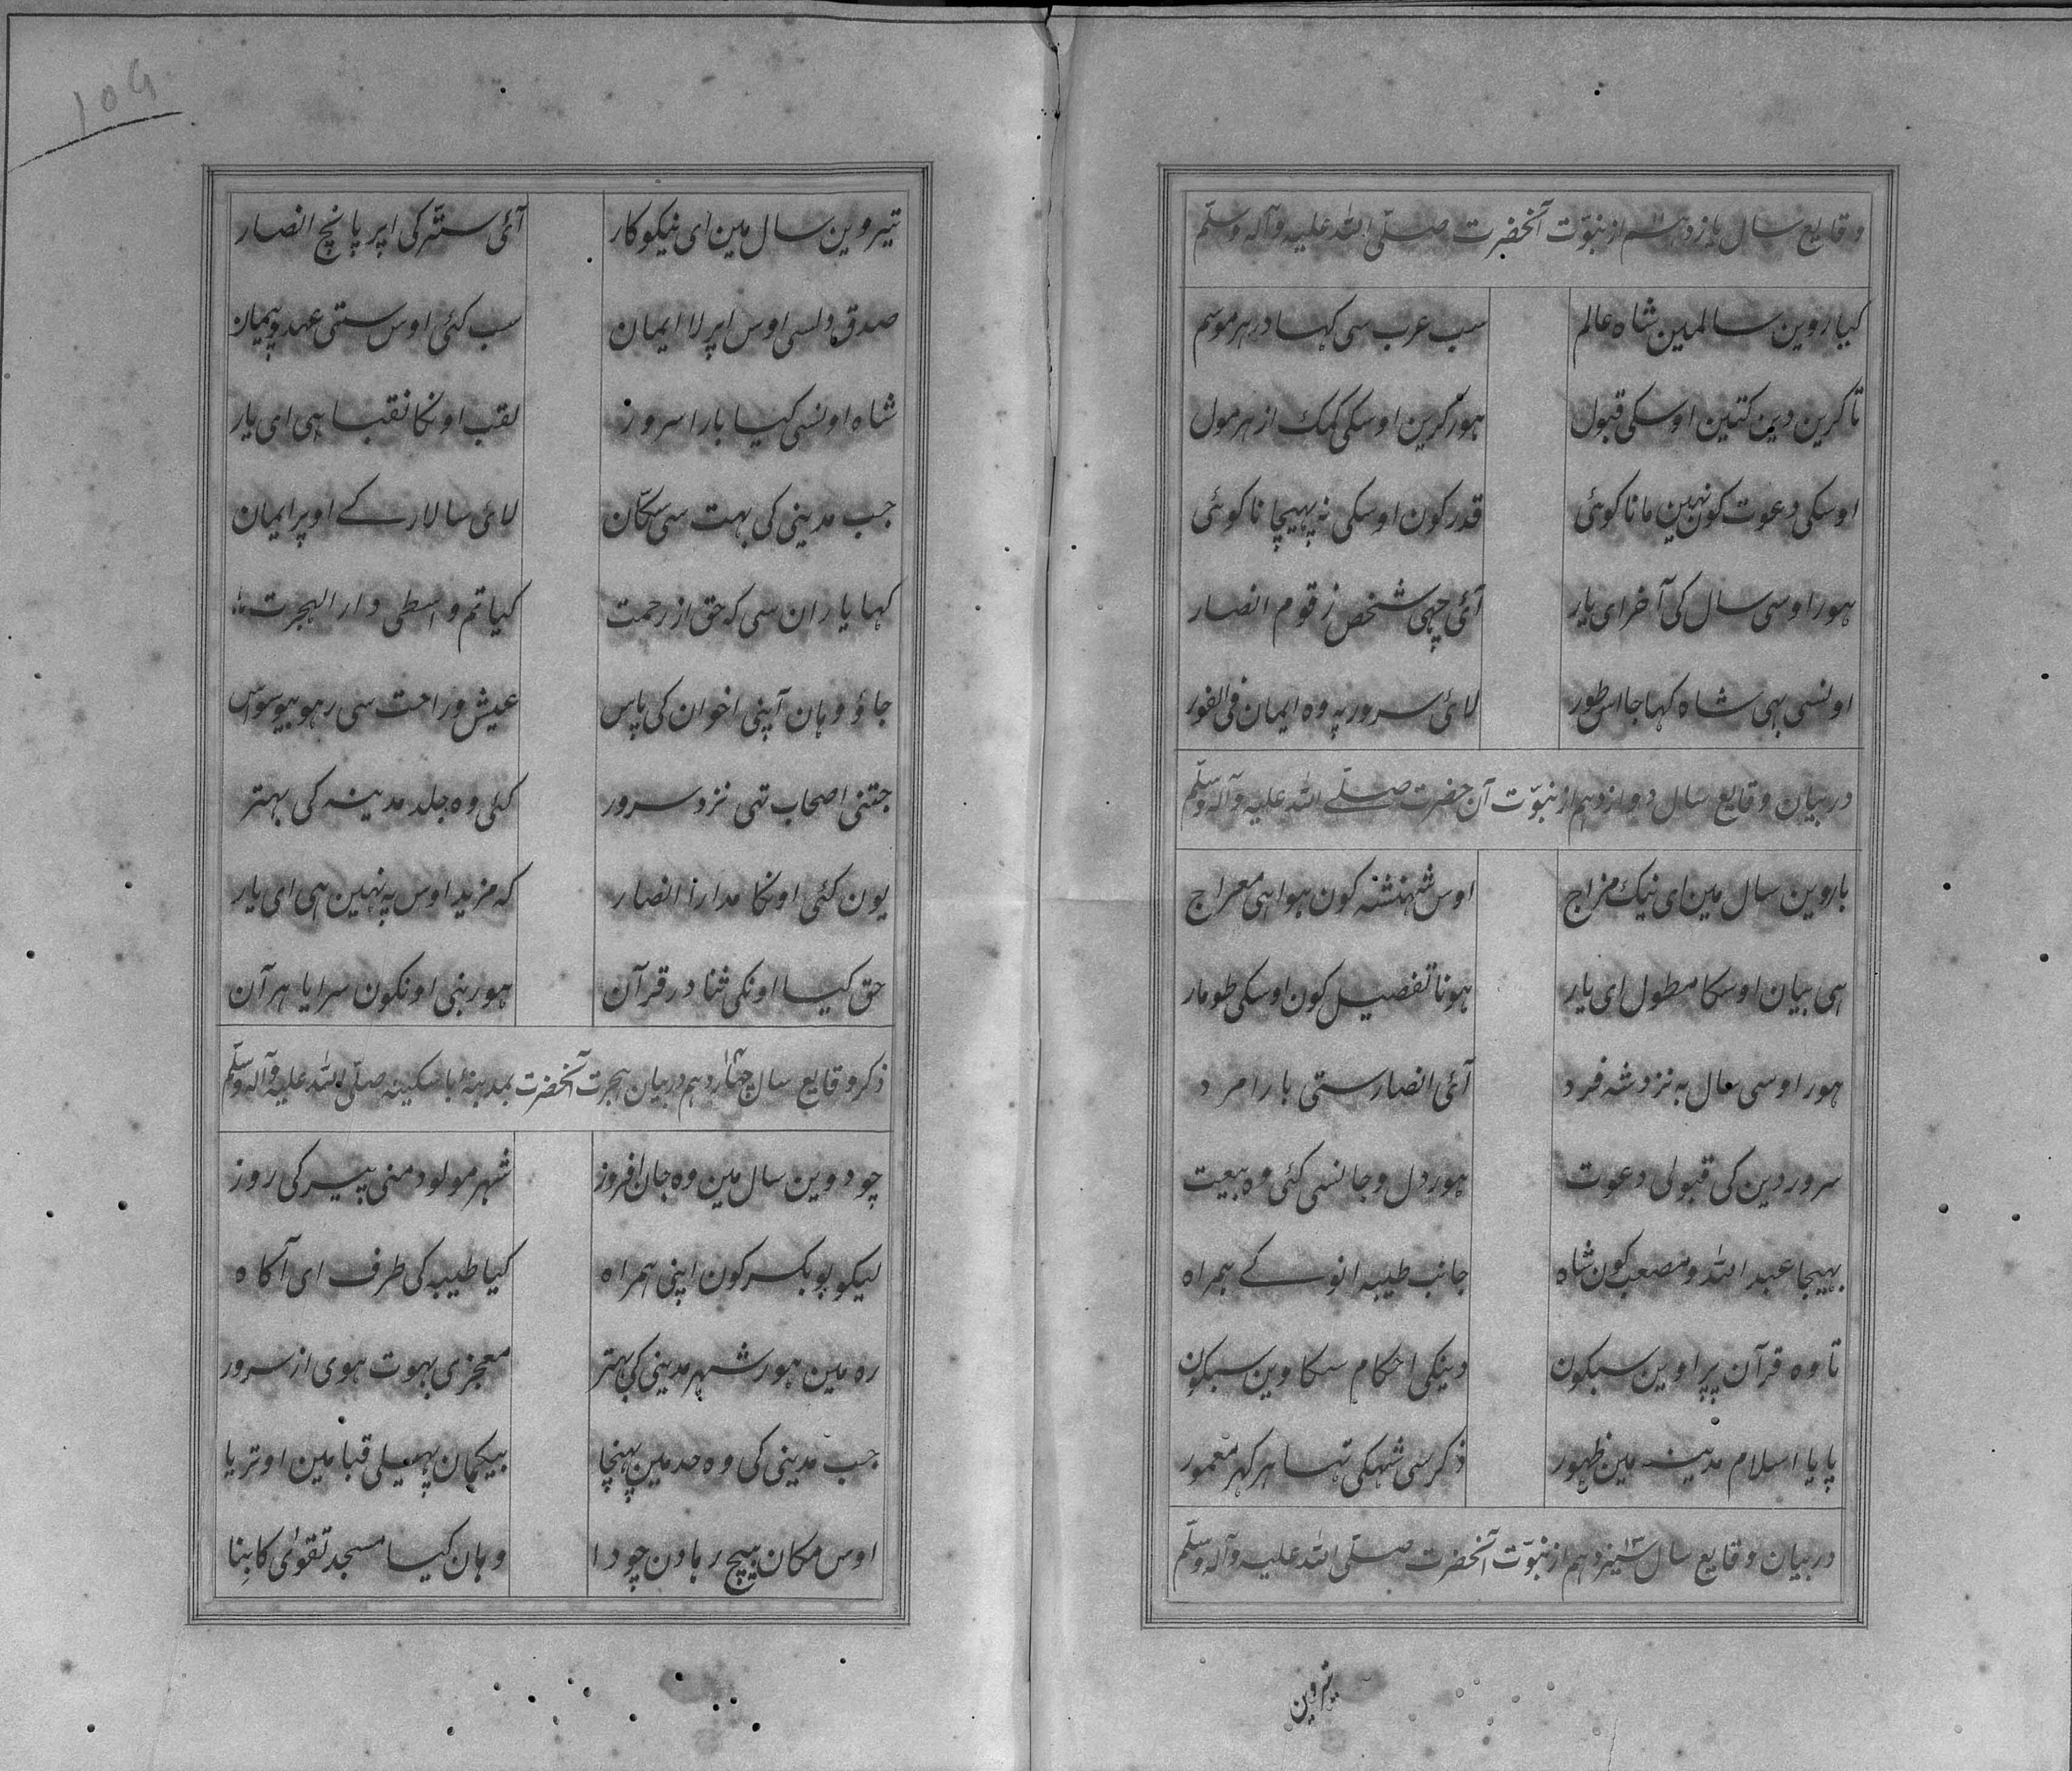 وقایع سال یازدهم از نبوّت آنحضرت صلّی اللّه علیه وآله وسلّم
کیارویں سالمین شاه عالم سب عرب سی کہا در ہر موسم
تا کرین دین کتین اوسکی قبول ہور کرین اوسکی کمک از ہر مول
اوسکی دعوت کون نہین مانا کوئی قدر کون اوسکی نہ پہیچانا کوئی
ہور اوسی سال کی آخر ای یار آئی چہی شخص ز قوم انصار
اونسی بہی شاه کہا جا اس طور لائی سرور پہ وه ایمان فی الفور
در بیان وقایع سال دوازدهم از نبوّت آن حضرت صلّی اللّه علیه وآله وسلّم
باروین سال مین ای نیک مزاج اوس شہنشہ کون ہوا ہی معراج
ہی بیان اوسکا مطول ای یار ہونا تفصیل کون اوسکی طومار
ہور اوسی سال به نزد شه فرد آئی انصار ستی بارا مرد
سرور دین کی قبولی دعوت ہور دل و جانسی کئی وه بیعت
بہیجا عبد اللّه و مصعب کون شاه جانب طیبه انو کے ہمراه
تا وه قرآن پڑاوین سبکون دینکی احکام سکاوین سبکون
پایا اسلام مدینه مین ظہور ذکر سی شہکی تہا ہر کہر معمور
در بیان وقایع سال سیزدهم از نبوّت آنحضرت صلّی اللّه علیه وآله وسلّم
تیروین
تیروین سال مین ای نیکو کار آئی ستّر کی اپر پانچ انصار
صدق دلسی اوس اپر لا ایمان سب کئی اوس ستی عهد و پیمان
شاه اونسی کیا بارا سروز لقب اونکا نقبا ہی ای یار
جب مدینی کی بہت سی سکّان لائی سالار کے اوپر ایمان
کہا یاران سی که حق از رحمت کیا تم واسطی دار الہجرت
جاؤ وہان آپنی اخوان کی پاس عیش و راحت سی رہو بیوسواس
جتنی اصحاب تہی نزد سرور کئی وه جلد مدینه کی بہتر
یون کئی اونکا مدارا انصار که مزید اوس پہ نہین ہی ای یار
حق کیا اونکی ثنا در قرآن ہور بنی اونکون سرایا ہر آن
ذکر وقایع سال چهاردهم در بیان ہجرت آنحضرت بمدینهٔ با سکینه صلّی اللّه علیه وآله وسلّم
چودوین سال مین وه جان افروز شہر مولود منی پیر کی روز
لیکو بوبکر کون اپنی ہمراه کیا طیبه کی طرف ای آکاه
ره مین ہور شہر مدینی کی بہتر معجزی بہوت ہوی از سرور
جب مدینی کی وه حد مین پہنچا بیکمان پہیلی قبا مین اوتریا
اوس مکان بیچ رہا دن چودا وہان کیا مسجد تقوای کا بِنا